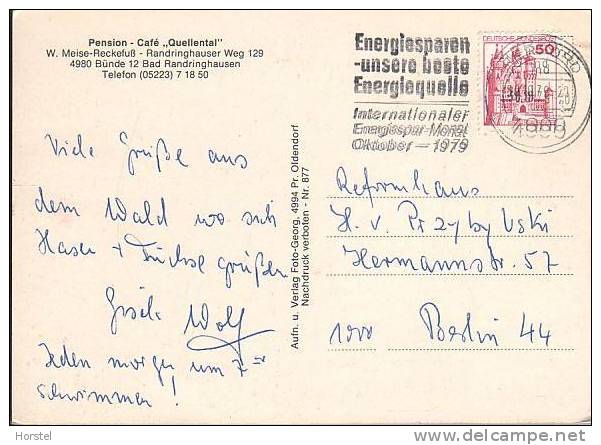 Pension - Café „Quellental"
W. Meise-Reckefuß - Randringhauser Weg 129
4980 Bünde 12 Bad Randringhausen
Telefon (05223) 7 18 50
Energiesparen
-unsere beste
Energiequelle
Internationaler
Energiespar-Monat
Oktober — 1979
DEUTSCHE BUNDESPOST
50
Viele Grüße aus
dem Wald wo sich
Hase + Füchse grüßen
Gisela Wolf
Jeden morgen um 7
schwimmen!
Aufn. u. Verlag Foto-Georg, 4994 Pr. Oldendorf
Nachdruck verboten - Nr. 877
Reformhaus
H. v. Przybylski
Hermannstr. 57
1000 Berlin 44
Horstel
delcampe.net